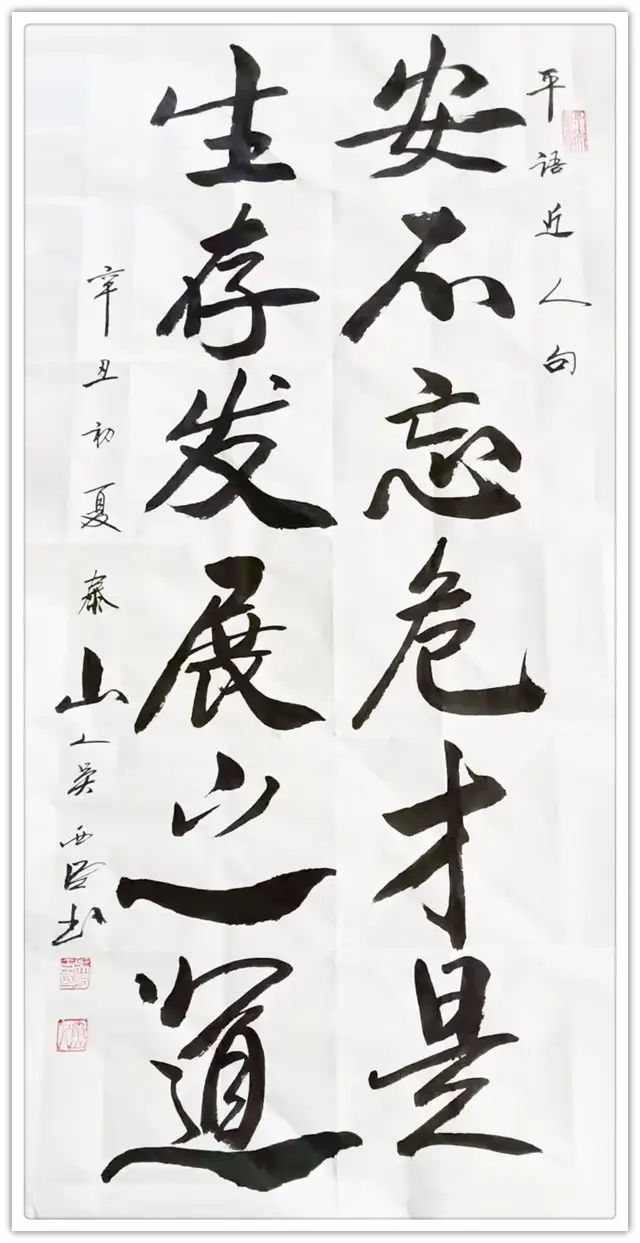 平语近人句
安不忘危才是
生存发展之道
辛丑初夏泰山人吴西书